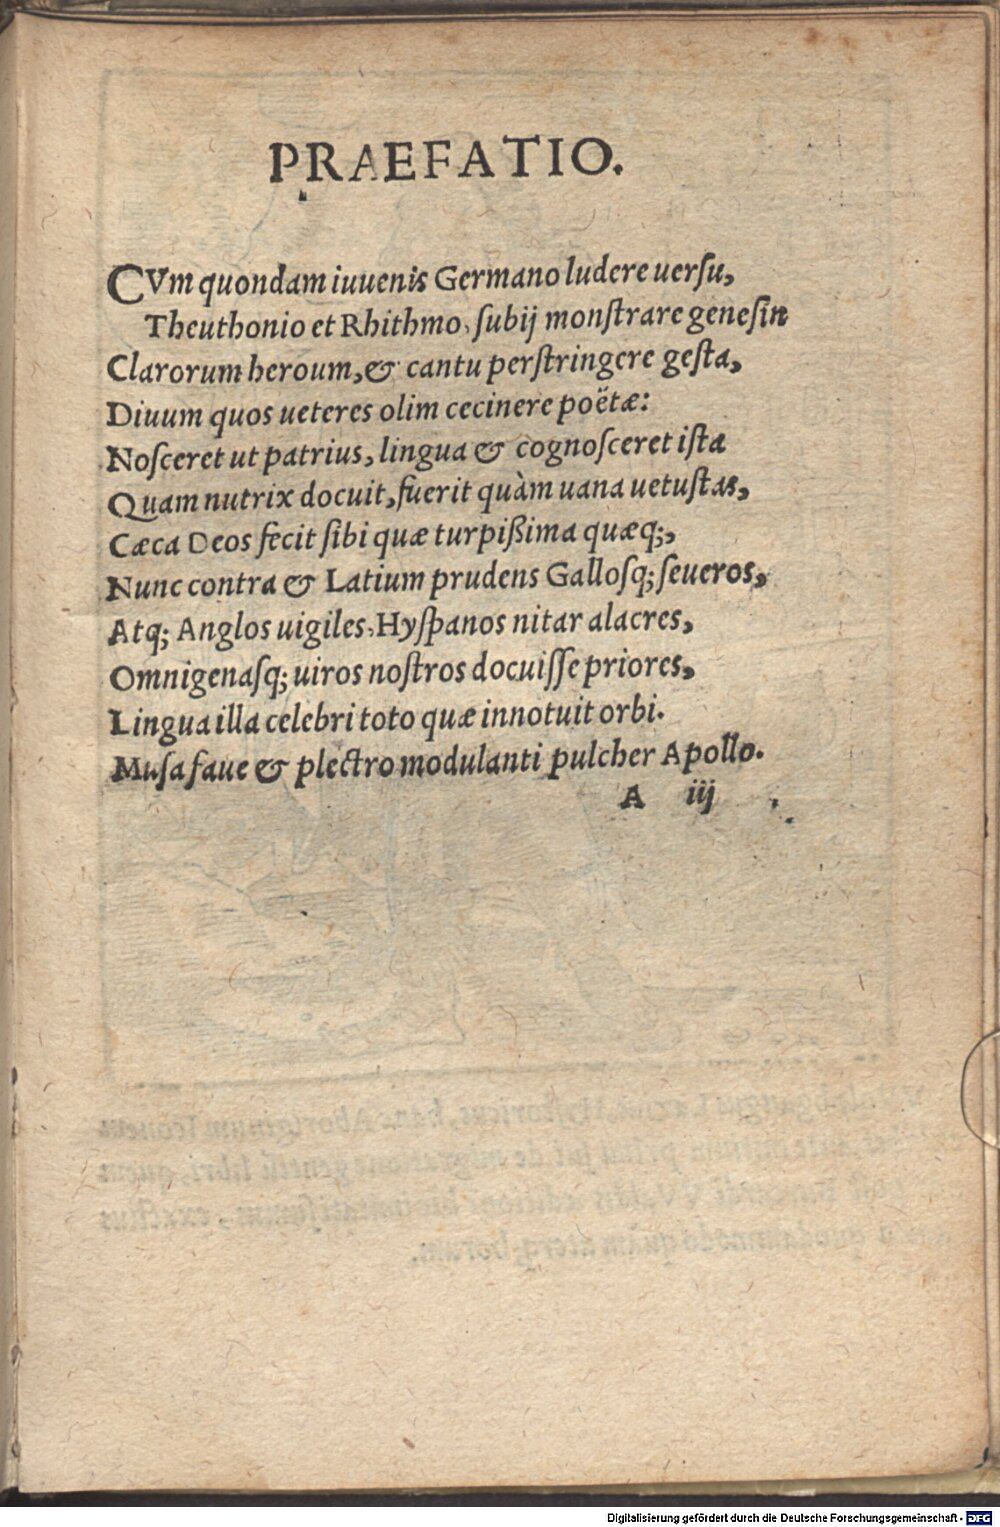 PRAEFATIO.
CVm quondam iuuenis Germano ludere uerſu,
Theuthonio et Rhithmo, ſubij monſtrare geneſin
Clarorum heroum, & cantu perſtringere geſta,
Diuum quos ueteres olim cecinere poëtæ:
Noſceret ut patrius, lingua & cognoſceret iſta
Quam nutrix docuit, fuerit quàm uana uetuſtas,
Cæca Deos fecit ſibi quæ turpißima quæq;,
Nunc contra & Latium prudens Galloſq; ſeueros,
Atq; Anglos uigiles, Hyſpanos nitar alacres,
Omnigenaſq; uiros noſtros docuiſſe priores,
Lingua illa celebri toto quæ innotuit orbi.
Muſa faue & plectro modulanti pulcher Apollo.
A iij
Digitalisierung gefördert durch die Deutsche Forschungsgemeinschaft - DFG